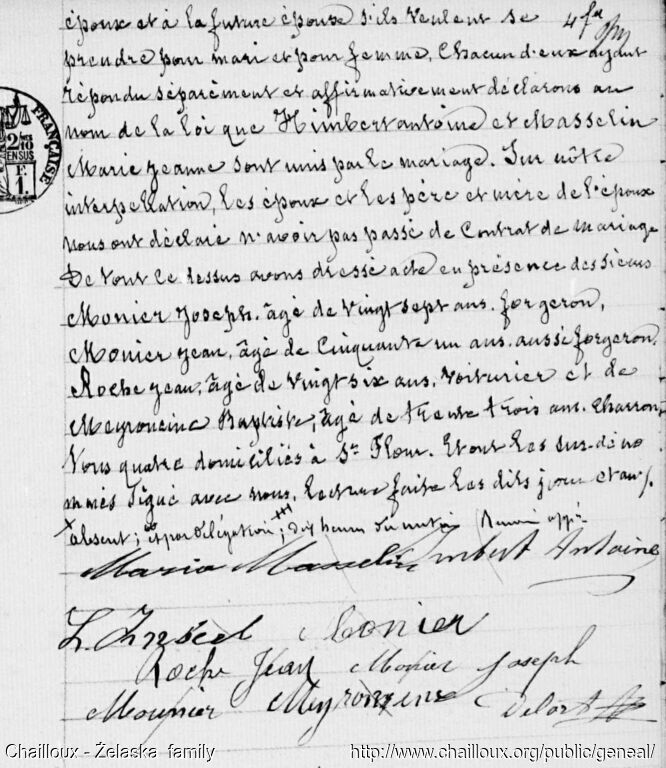 époux et à la future épouse s'ils veulent se
prendre pour mari et pour femme, chacun d'eux ayant
répondu séparément et affirmativement déclarons au
nom de la loi que Himbert antoine et Masselin
Marie jeanne sont unis par le mariage. Sur nôtre
interpellation, les époux et les père et mère de l'époux
nous ont déclaré n'avoir pas passé de Contrat de mariage
De tout ce dessus avons dressé acte en présence des sieurs
Monier Joseph, âgé de vingt sept ans, forgeron,
Monier jean, âgé de Cinquante un ans, aussi forgeron,
Roche jean, âgé de vingt six ans, voiturier et de
Meyroneinc Baptiste, âgé de trente trois ans, charron
tous quatre domiciliés à St Flour. Et ont les sus-déno
mmés signé avec nous, lecture faite les dits jour et an
absent; et par délégation; dix heures du matin
Maria Masselin Imbert Antoine
Monier
Roche Jean Monier Joseph
Mounier Meyroneinc Delort
FRANÇAISE
2
10
EN SUS
F.
1.
Chailloux - Żelaska family
http://www.chailloux.org/public/geneal/